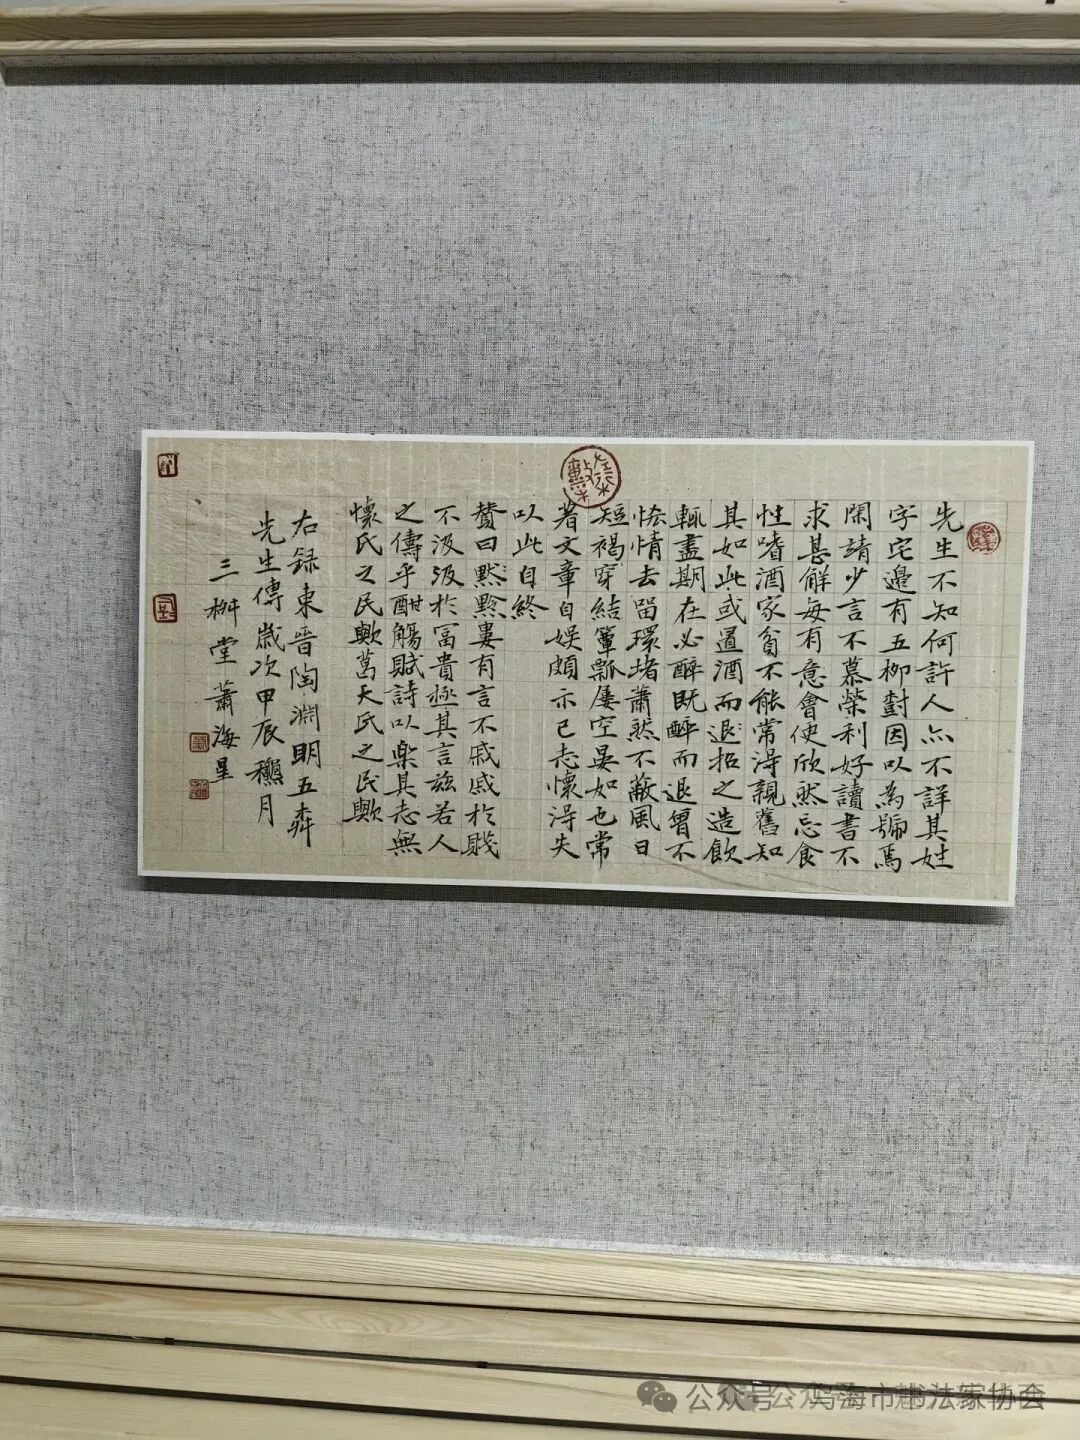 先生不知何許人亦不詳其姓
字宅邊有五柳樹因以為號焉
閑靖少言不慕榮利好讀書不
求甚解每有意會便欣然忘食
性嗜酒家貧不能常得親舊知
其如此或置酒而退招之造飲
輒盡期在必醉既醉而退曾不
恡情去留環堵蕭然不蔽風日
短褐穿結簞瓢屢空晏如也常
著文章自娛頗示己志懷得失
以此自終
贊曰黙黔婁有言不戚戚於賤
不汲汲於富貴極其言茲若人
之儔乎酣觴賦詩以樂其志無
懷氏之民歟葛天氏之民歟
右録東晉陶淵明五桺
先生傳歲次甲辰龝月
三堂蕭海星
公众号·乌海市书法家协会